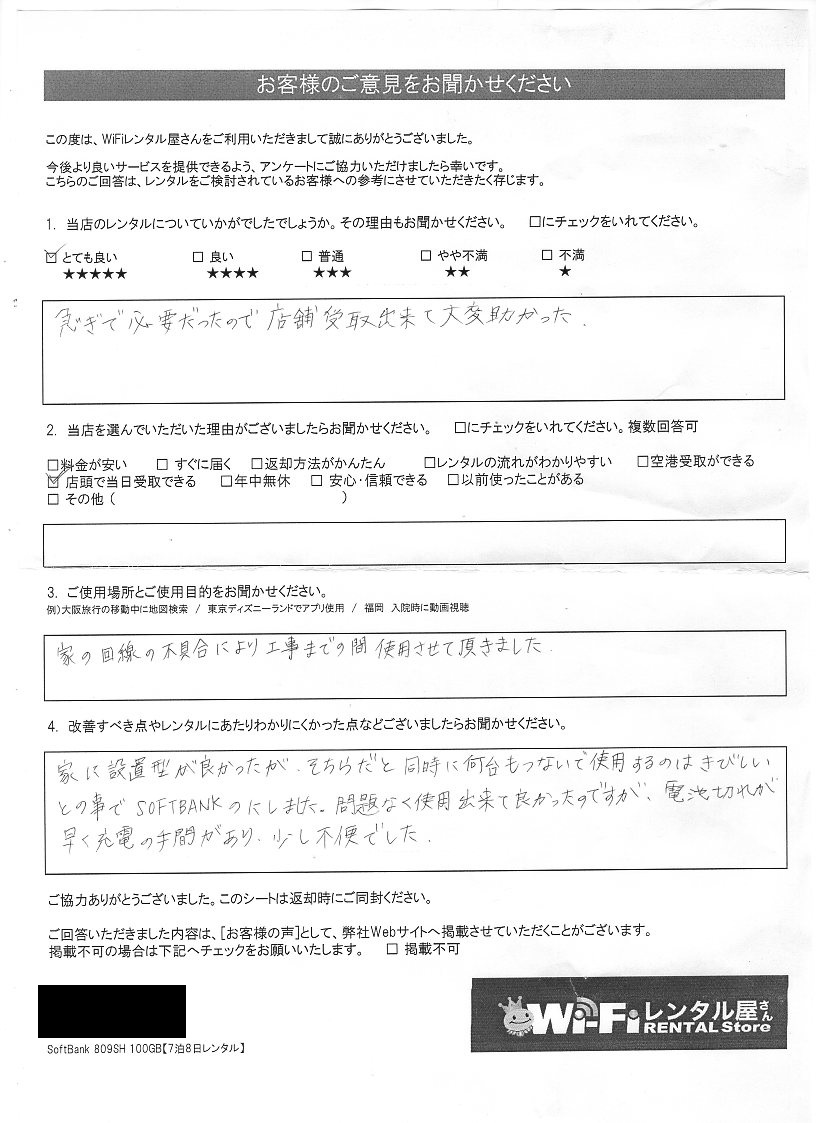 お客様のご意見をお聞かせください
この度は、WiFiレンタル屋さんをご利用いただきまして誠にありがとうございました。
今後より良いサービスを提供できるよう、アンケートにご協力いただけましたら幸いです。
こちらのご回答は、レンタルをご検討されているお客様への参考にさせていただきたく存じます。
1. 当店のレンタルについていかがでしたでしょうか。その理由もお聞かせください。 □にチェックをいれてください。
☑ とても良い □ 良い □ 普通 □ やや不満 □ 不満
★★★★★ ★★★★ ★★★ ★★ ★
急ぎで必要だったので店舗受取出来て大変助かった.
2. 当店を選んでいただいた理由がございましたらお聞かせください。 □にチェックをいれてください。複数回答可
□料金が安い □ すぐに届く □返却方法がかんたん □レンタルの流れがわかりやすい □空港受取ができる
☑ 店頭で当日受取できる □年中無休 □ 安心・信頼できる □以前使ったことがある
□ その他 ( )
3. ご使用場所とご使用目的をお聞かせください。
例)大阪旅行の移動中に地図検索 / 東京ディズニーランドでアプリ使用 / 福岡 入院時に動画視聴
家の回線の不具合により工事までの間使用させて頂きました.
4. 改善すべき点やレンタルにあたりわかりにくかった点などございましたらお聞かせください。
家に設置型が良かったが、そちらだと同時に何台もつないで使用するのはきびしい
との事でSOFTBANKのにしました。問題なく使用出来て良かったのですが、電池切れが
早く充電の手間があり、少し不便でした.
ご協力ありがとうございました。このシートは返却時にご同封ください。
ご回答いただきました内容は、[お客様の声]として、弊社Webサイトへ掲載させていただくことがございます。
掲載不可の場合は下記へチェックをお願いいたします。 □ 掲載不可
Wi-Fiレンタル屋さん
RENTAL Store
SoftBank 809SH 100GB【7泊8日レンタル】